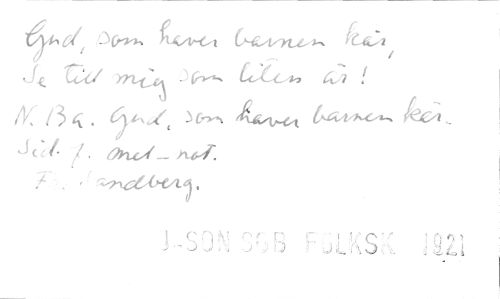 Gud, som haver barnen kär,
Se till mig som liten är!
N. Ba. Gud, som haver barnen kär.
Sid. 7. met-not.
Fr. Sandberg.
J-SON SOB FOLKSK 1921